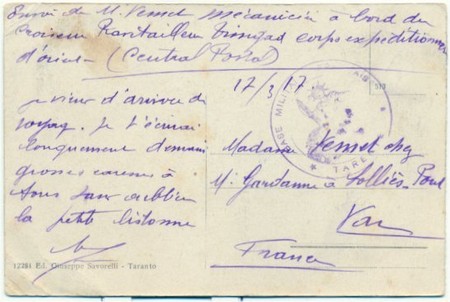 Envoi de M. Vemet mécanicien à bord du
Croiseur Ravitailleur Timgad corps expéditionnaire
d'orient (Central Postal)
17/3/17
je viens d'arriver de
voyage. Je t'écrirai
longuement demain
grosses caresses à
tous sans oublier
la petite
Madame Vemet chez
M. Gardanne à Solliès-Pont
Var
France
BASE MILIT AIS
TARE
12284 Ed. Giuseppe Savorelli - Taranto